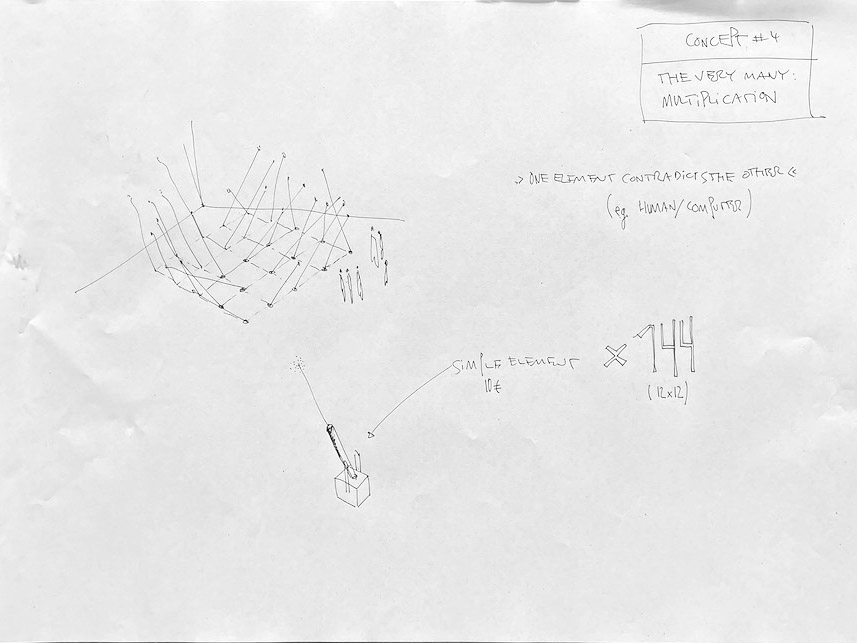 CONCEPT #4
THE VERY MANY:
MULTIPLICATION
→ ONE ELEMENT CONTRADICTS THE OTHER ←
(eg. HUMAN/COMPUTER)
SIMPLE ELEMENT
10€
×144
(12x12)